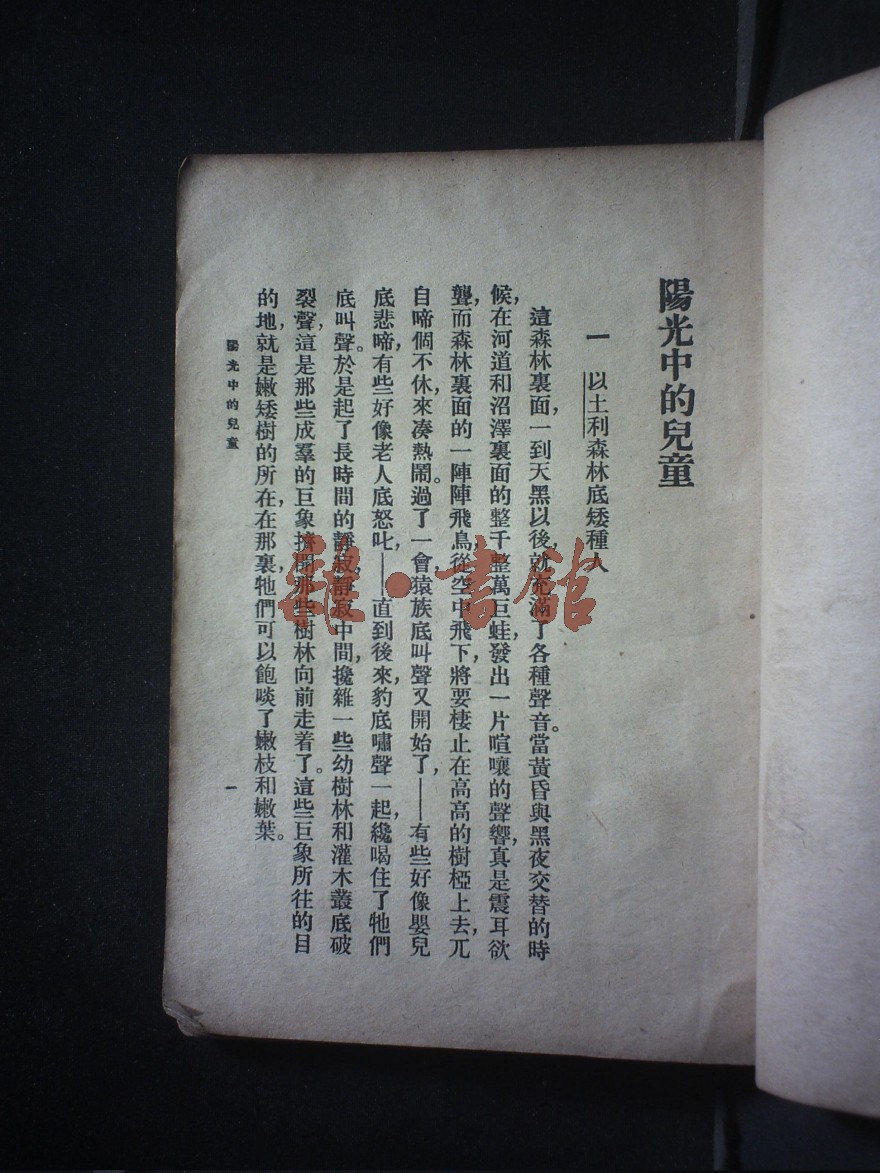 陽光中的兒童
一 以土利森林底矮種人
這森林裏面，一到天黑以後，就充滿了各種聲音。當黃昏與黑夜交替的時
候，在河道和沼澤裏面的整千整萬巨蛙，發出一片喧嚷的聲響，真是震耳欲
聾，而森林裏面的一陣陣飛鳥，從空中飛下，將要棲止在高高的樹椏上去，兀
自啼個不休，來凑熱鬧。過了一會，猿族底叫聲又開始了，——有些好像嬰兒
底悲啼，有些好像老人底怒叱，——直到後來，豹底嘯聲一起，纔喝住了牠們
底叫聲。於是起了長時間的靜寂，靜寂中間，攙雜一些幼樹林和灌木叢底破
裂聲，這是那些成羣的巨象擠開那些樹林向前走着了。這些巨象所往的目
的地，就是嫩矮樹的所在，在那裏，牠們可以飽啖了嫩枝和嫩葉。
陽光中的兒童
一
羅·書館